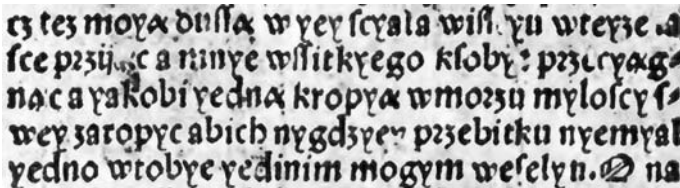 cz tez moyą dussą w yey scyala wist yu wteyze
sce przijąc a mnye wssitkyego ksoby: przecyag⸗
nąc a yakobi yedną kropyą wmorzu myloscy s⸗
wey zatopyc abich nygdzyey przebitku nyemyal
yedno wtobye yedinim mogym weselyn. na